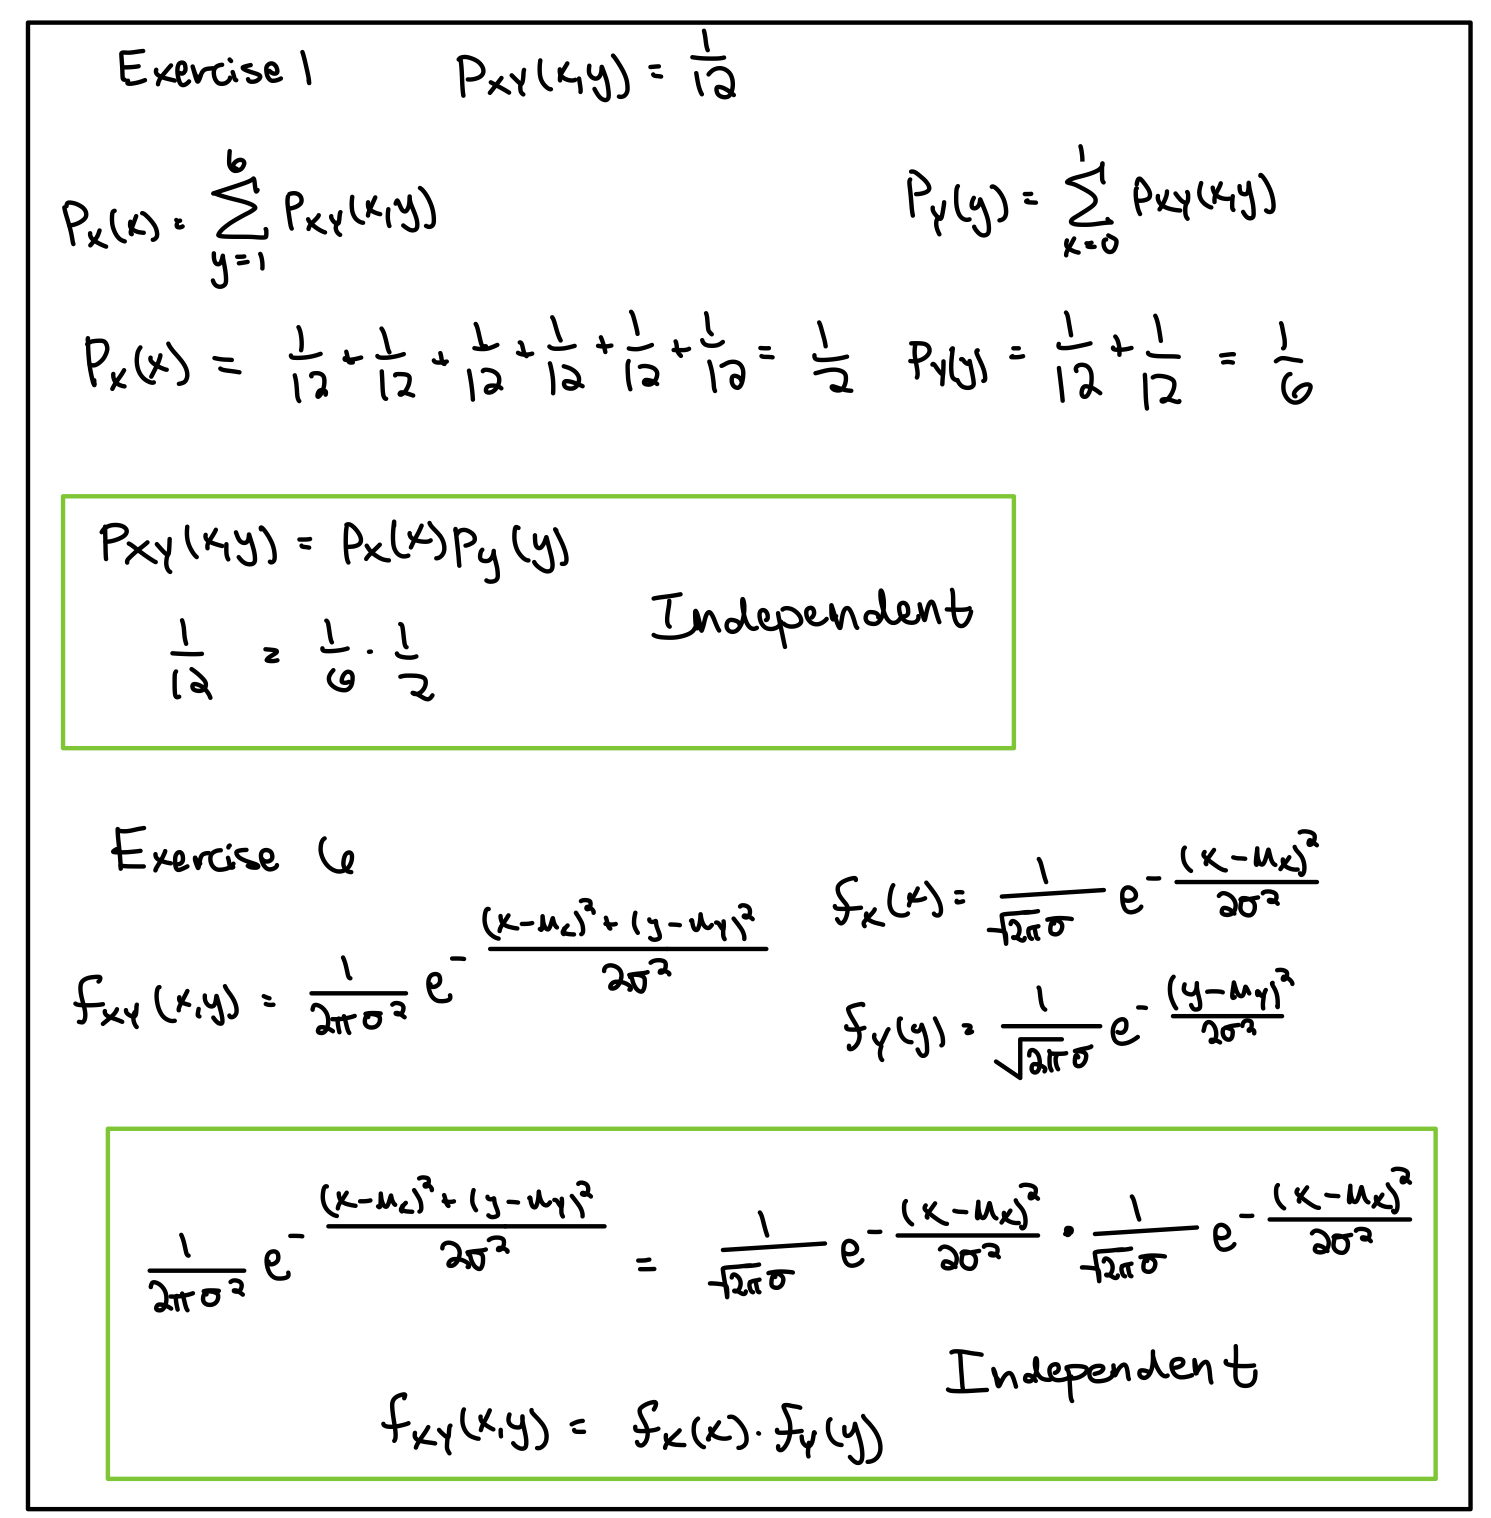 Exercise 1 P_XY(x,y) = 1/12
P_X(x) = ∑_{y=1}^{6} P_XY(x,y) P_Y(y) = ∑_{x=0}^{1} P_XY(x,y)
P_X(x) = 1/12 + 1/12 + 1/12 + 1/12 + 1/12 + 1/12 = 1/2 P_Y(y) = 1/12 + 1/12 = 1/6
P_XY(x,y) = P_X(x) P_y(y)
Independent
1/12 = 1/6 · 1/2
Exercise 6
f_X(x) = 1/(√2π σ) e^{-(x-μ_X)²/2σ²}
f_XY(x,y) = 1/(2πσ²) e^{-((x-μ_x)²+(y-μ_Y)²)/2σ²}
f_Y(y) = 1/(√2π σ) e^{-(y-μ_Y)²/2σ²}
1/(2πσ²) e^{-((x-μ_x)²+(y-μ_Y)²)/2σ²} = 1/(√2π σ) e^{-(x-μ_X)²/2σ²} · 1/(√2π σ) e^{-(x-μ_X)²/2σ²}
Independent
f_XY(x,y) = f_X(x) · f_Y(y)